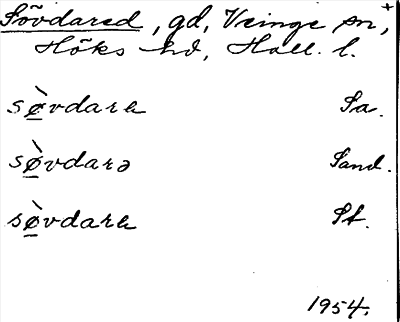 Sövdared, gd, Veinge sn, +
Höks hd, Hall. l.
sø̀vdarα Sa.
sø̀vdarə Sand.
sø̀vdarα St.
1954.